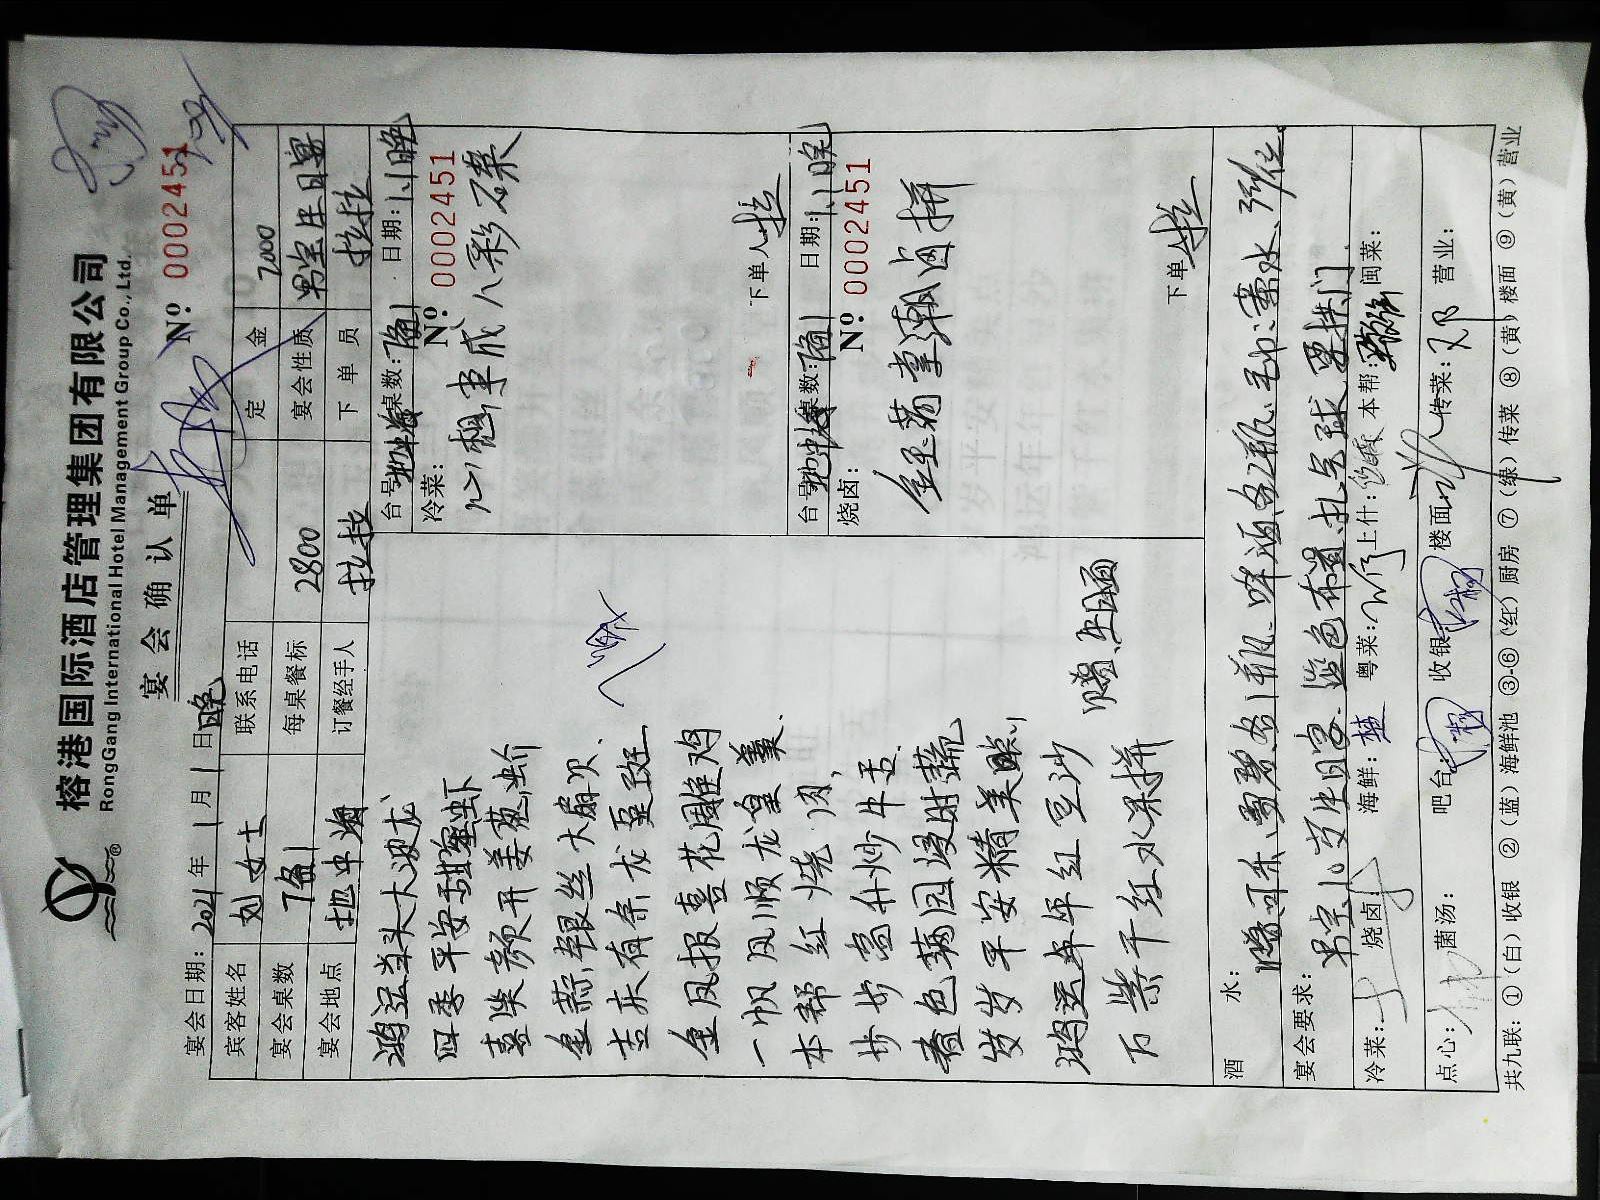 榕港国际酒店管理集团有限公司
RongGang International Hotel Management Group Co., Ltd.
宴会确认单
Nº 0002451
宴会日期：2021年1月1日晚
宾客姓名 刘女士 联系电话 定金 2000
宴会桌数 7 每桌餐标 2800 宴会性质 男宝生日宴
宴会地点 地中海 订餐经手人 拉拉 下单员 拉拉
鸿运当头大波龙
四季平安甜蜜虾
喜笑颜开姜葱蚧
金蒜银丝大扇贝
吉庆有余龙趸斑
金凤报喜花雕鸡
一帆风顺龙皇羹
本帮红烧肉
步步高升炒牛舌
春色满园浸时蔬
岁岁平安精美点
鸿运年年红豆沙
万紫千红水果拼
赠：生日面
台号：地中海 桌数： 日期：1.1晚
冷菜： Nº 0002451
心想事成八彩碟
下单人：拉
台号：地中海 桌数： 日期：1.1晚
烧卤： Nº 0002451
金玉满堂潮卤拼
下单：拉
酒水：
赠：可乐、雪碧各1瓶
宴会要求：
男宝10岁生日宴 蓝色布置 扎气球 要拱门
冷菜： 烧卤： 海鲜： 粤菜： 上什： 本帮： 闽菜：
点心： 菌汤： 吧台： 收银： 楼面： 传菜： 营业：
共九联：①（白）收银 ②（蓝）海鲜池 ③-⑥（红）厨房 ⑦（绿）传菜 ⑧（黄）楼面 ⑨（黄）营业